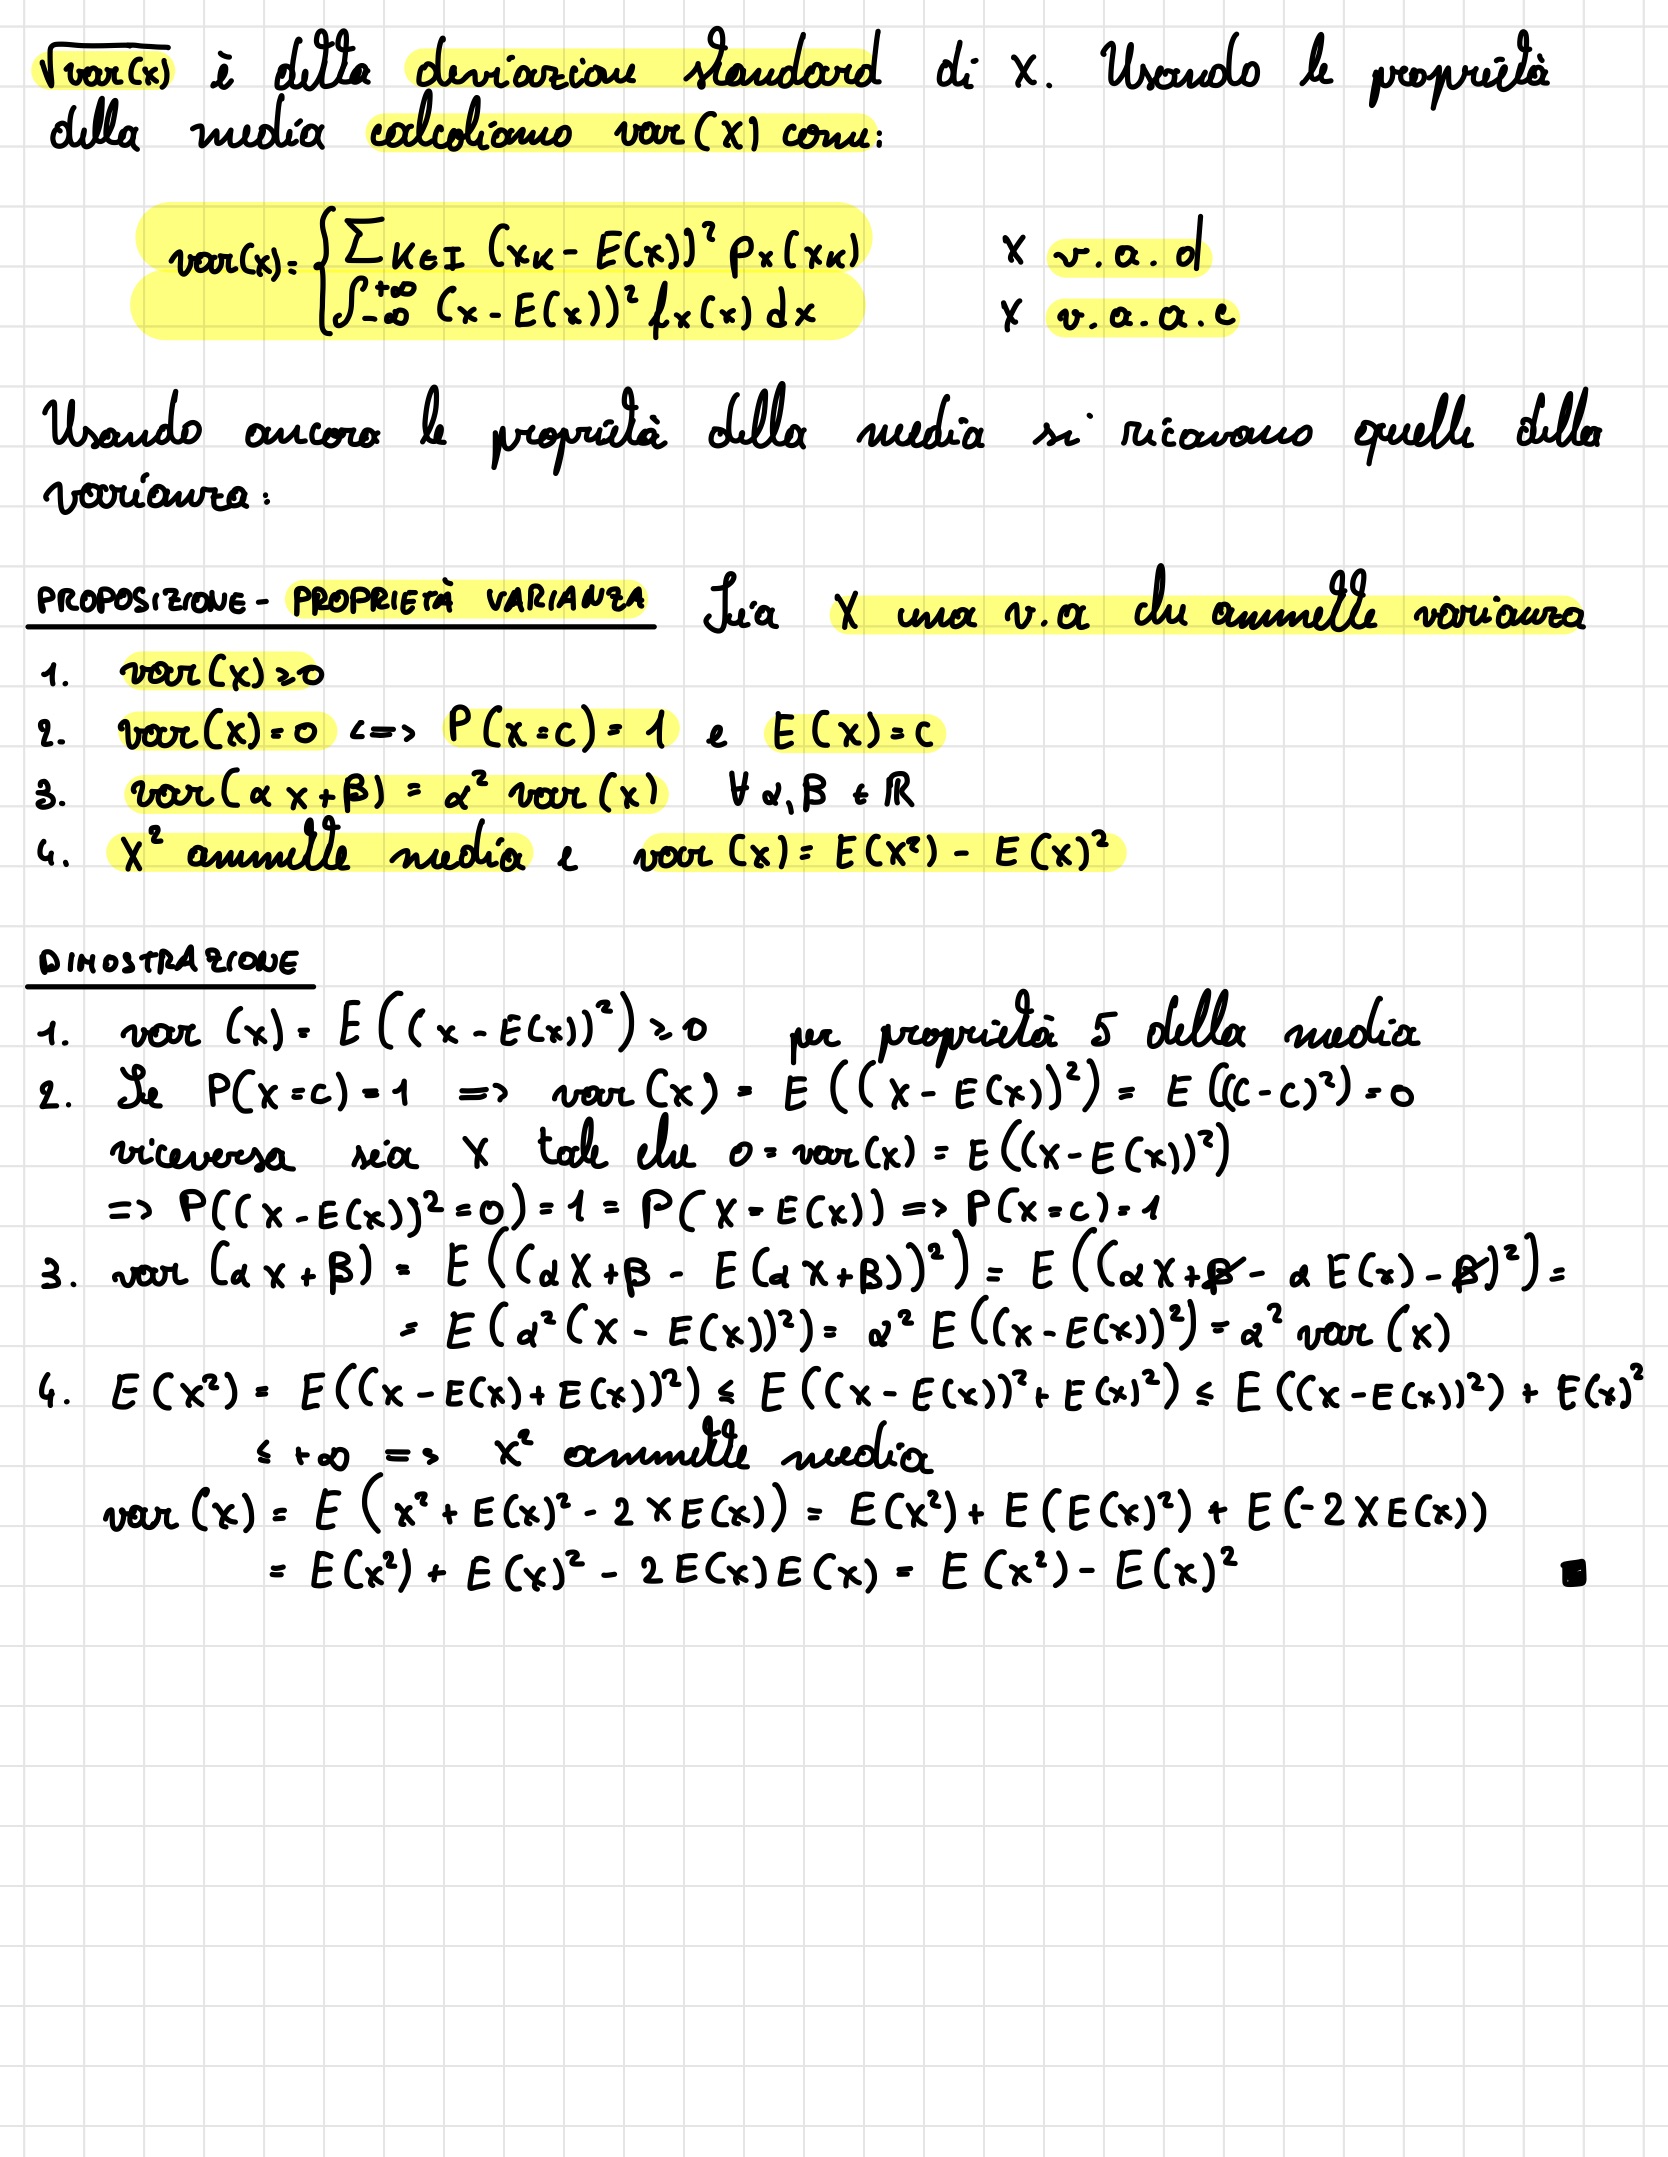 √var(x) è detta deviazione standard di X. Usando le proprietà
della media calcoliamo var(X) come:
var(x)= { ∑K∈I (xK - E(x))² Px(xK)   X v.a.d
∫-∞^+∞ (x - E(x))² fx(x) dx   X v.a.a.c
Usando ancora le proprietà della media si ricavano quelle della
varianza:
PROPOSIZIONE - PROPRIETÀ VARIANZA   Sia X una v.a che ammette varianza
1. var(x) ≥ 0
2. var(x) = 0 <=> P(x=c) = 1 e E(x) = c
3. var(αx+β) = α² var(x)   ∀ α,β ∈ ℝ
4. X² ammette media e var(x) = E(X²) - E(x)²
DIMOSTRAZIONE
1. var(x) = E((x - E(x))²) ≥ 0   per proprietà 5 della media
2. Se P(x=c) = 1 => var(x) = E((X - E(x))²) = E((c-c)²) = 0
viceversa sia X tale che 0 = var(x) = E((x-E(x))²)
=> P((x-E(x))² = 0) = 1 = P(X = E(x)) => P(x=c) = 1
3. var(αx+β) = E((αX+β - E(αx+β))²) = E((αX+β - αE(x) - β)²) =
= E(α²(x - E(x))²) = α² E((x-E(x))²) = α² var(x)
4. E(x²) = E((x - E(x) + E(x))²) ≤ E((x - E(x))² + E(x)²) ≤ E((x-E(x))²) + E(x)²
≤ +∞ => x² ammette media
var(x) = E(x² + E(x)² - 2xE(x)) = E(x²) + E(E(x)²) + E(-2XE(x))
= E(x²) + E(x)² - 2E(x)E(x) = E(x²) - E(x)² ■